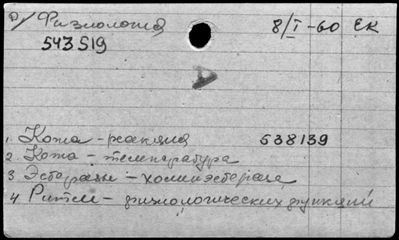 Р/ Физиология 8/I-60 ЕК
543519
А
1. Кожа - реакция 538139
2. Кожа - температура
3 Эстеразы - холинэстераза
4 Ритм - физиологических функций